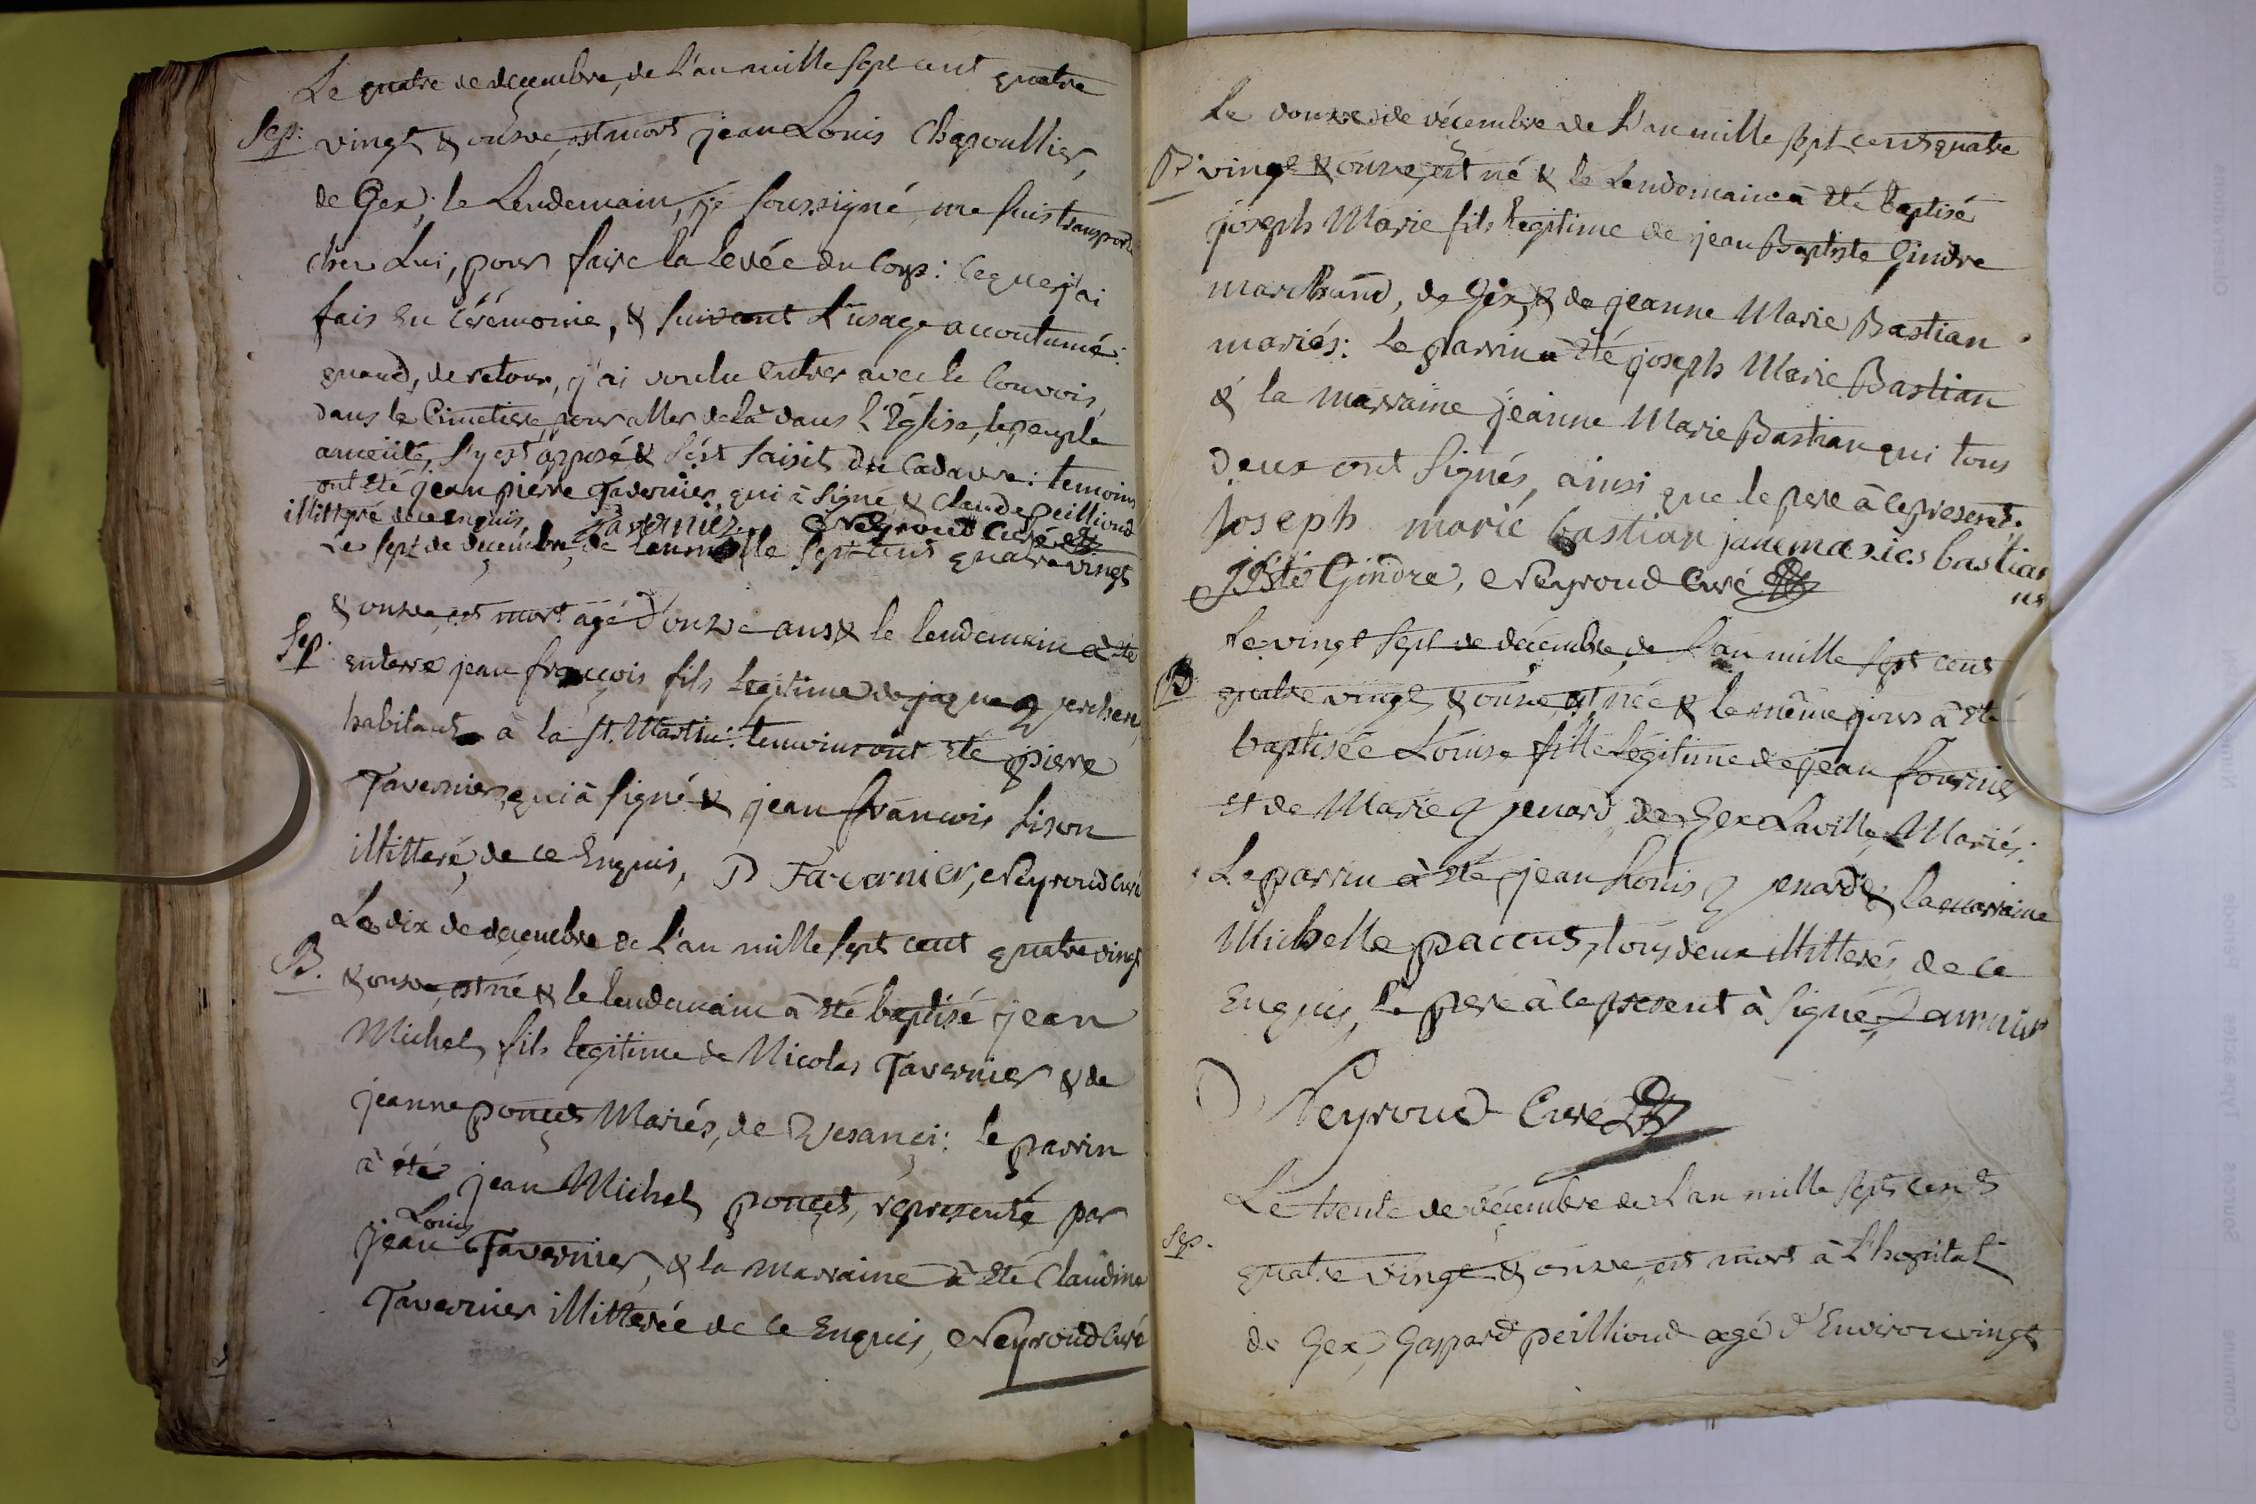 Le quatre de decembre, de L'an mille sept cent quatre
Sep: vingt & onze, est mort jean Louis Chapoullier,
de Gex; le Lendemain, je soussigné, me suis transporté
chez Lui, pour faire la levée du Corps: ce que j'ai
fais En Cérémonie, & suivant L'usage accoutumé:
quand, de retour, j'ai voulu entrer avec le Convois,
dans le Cimetiere, pour aller de là dans l'Eglise, le peuple
ameüté, s'y est opposé & s'est saisit du Cadavre: temoins
ont été jean pierre Tavernier, qui à signé, & Claude peillioud
illitteré de ce enquis, Tavernier, Neyroud Curé
Le sept de decembre, de l'an mille sept cent quatre vingt
& onze, est mort agé d'onze ans & le lendemain a été
Sep: enterré jean françois fils Legitime de jaque
habitant à la St. Martin: temoins ont été pierre
Tavernier, qui à signé & jean françois
illitteré, de ce Enquis, P Tavernier, Neyroud Curé
Le dix de decembre de L'an mille sept cent quatre vingt
B. & onze, est né & le lendemain à été baptisé jean
Michel, fils legitime de Nicolas Tavernier & de
jeanne ponçet Mariés, de Vesançi: le parrin
à été jean Michel ponçet, représenté par
Louis
jean Tavernier, & la marraine à été Claudine
Tavernier illitterée de ce Enquis, Neyroud Curé
Le douze de décembre de L'an mille sept cent quatre
B: vingt & onze, est né & le Lendemain à été baptisé
joseph Marie fils legitime de jean Baptiste Gindre
marchand, de Gex, & de jeanne Marie Bastian
mariés: Le parrin à été joseph Marie Bastian
& la marraine jeanne Marie Bastian qui tous
deux ont signés, ainsi que le pere à ce present.
joseph marie bastian jane maries bastian
JBte Gindre, Neyroud Curé
Le vingt sept de décembre, de L'an mille sept cent
B: quatre vingt & onze, est née & le même jour à été
baptisée Louise fille légitime de jean fournier
et de Marie genard de Gex La ville, Mariés:
Le parrin à été jean Louis genard & la marraine
Michelle paccut, tous deux illitterés, de ce
Enquis, le pere à ce present à signé,
Neyroud Curé
Le trente de décembre de L'an mille sept cent
Sep. quatre vingt & onze, est mort à L'hopital
de Gex, Gaspard peillioud agé d'Environ vingt